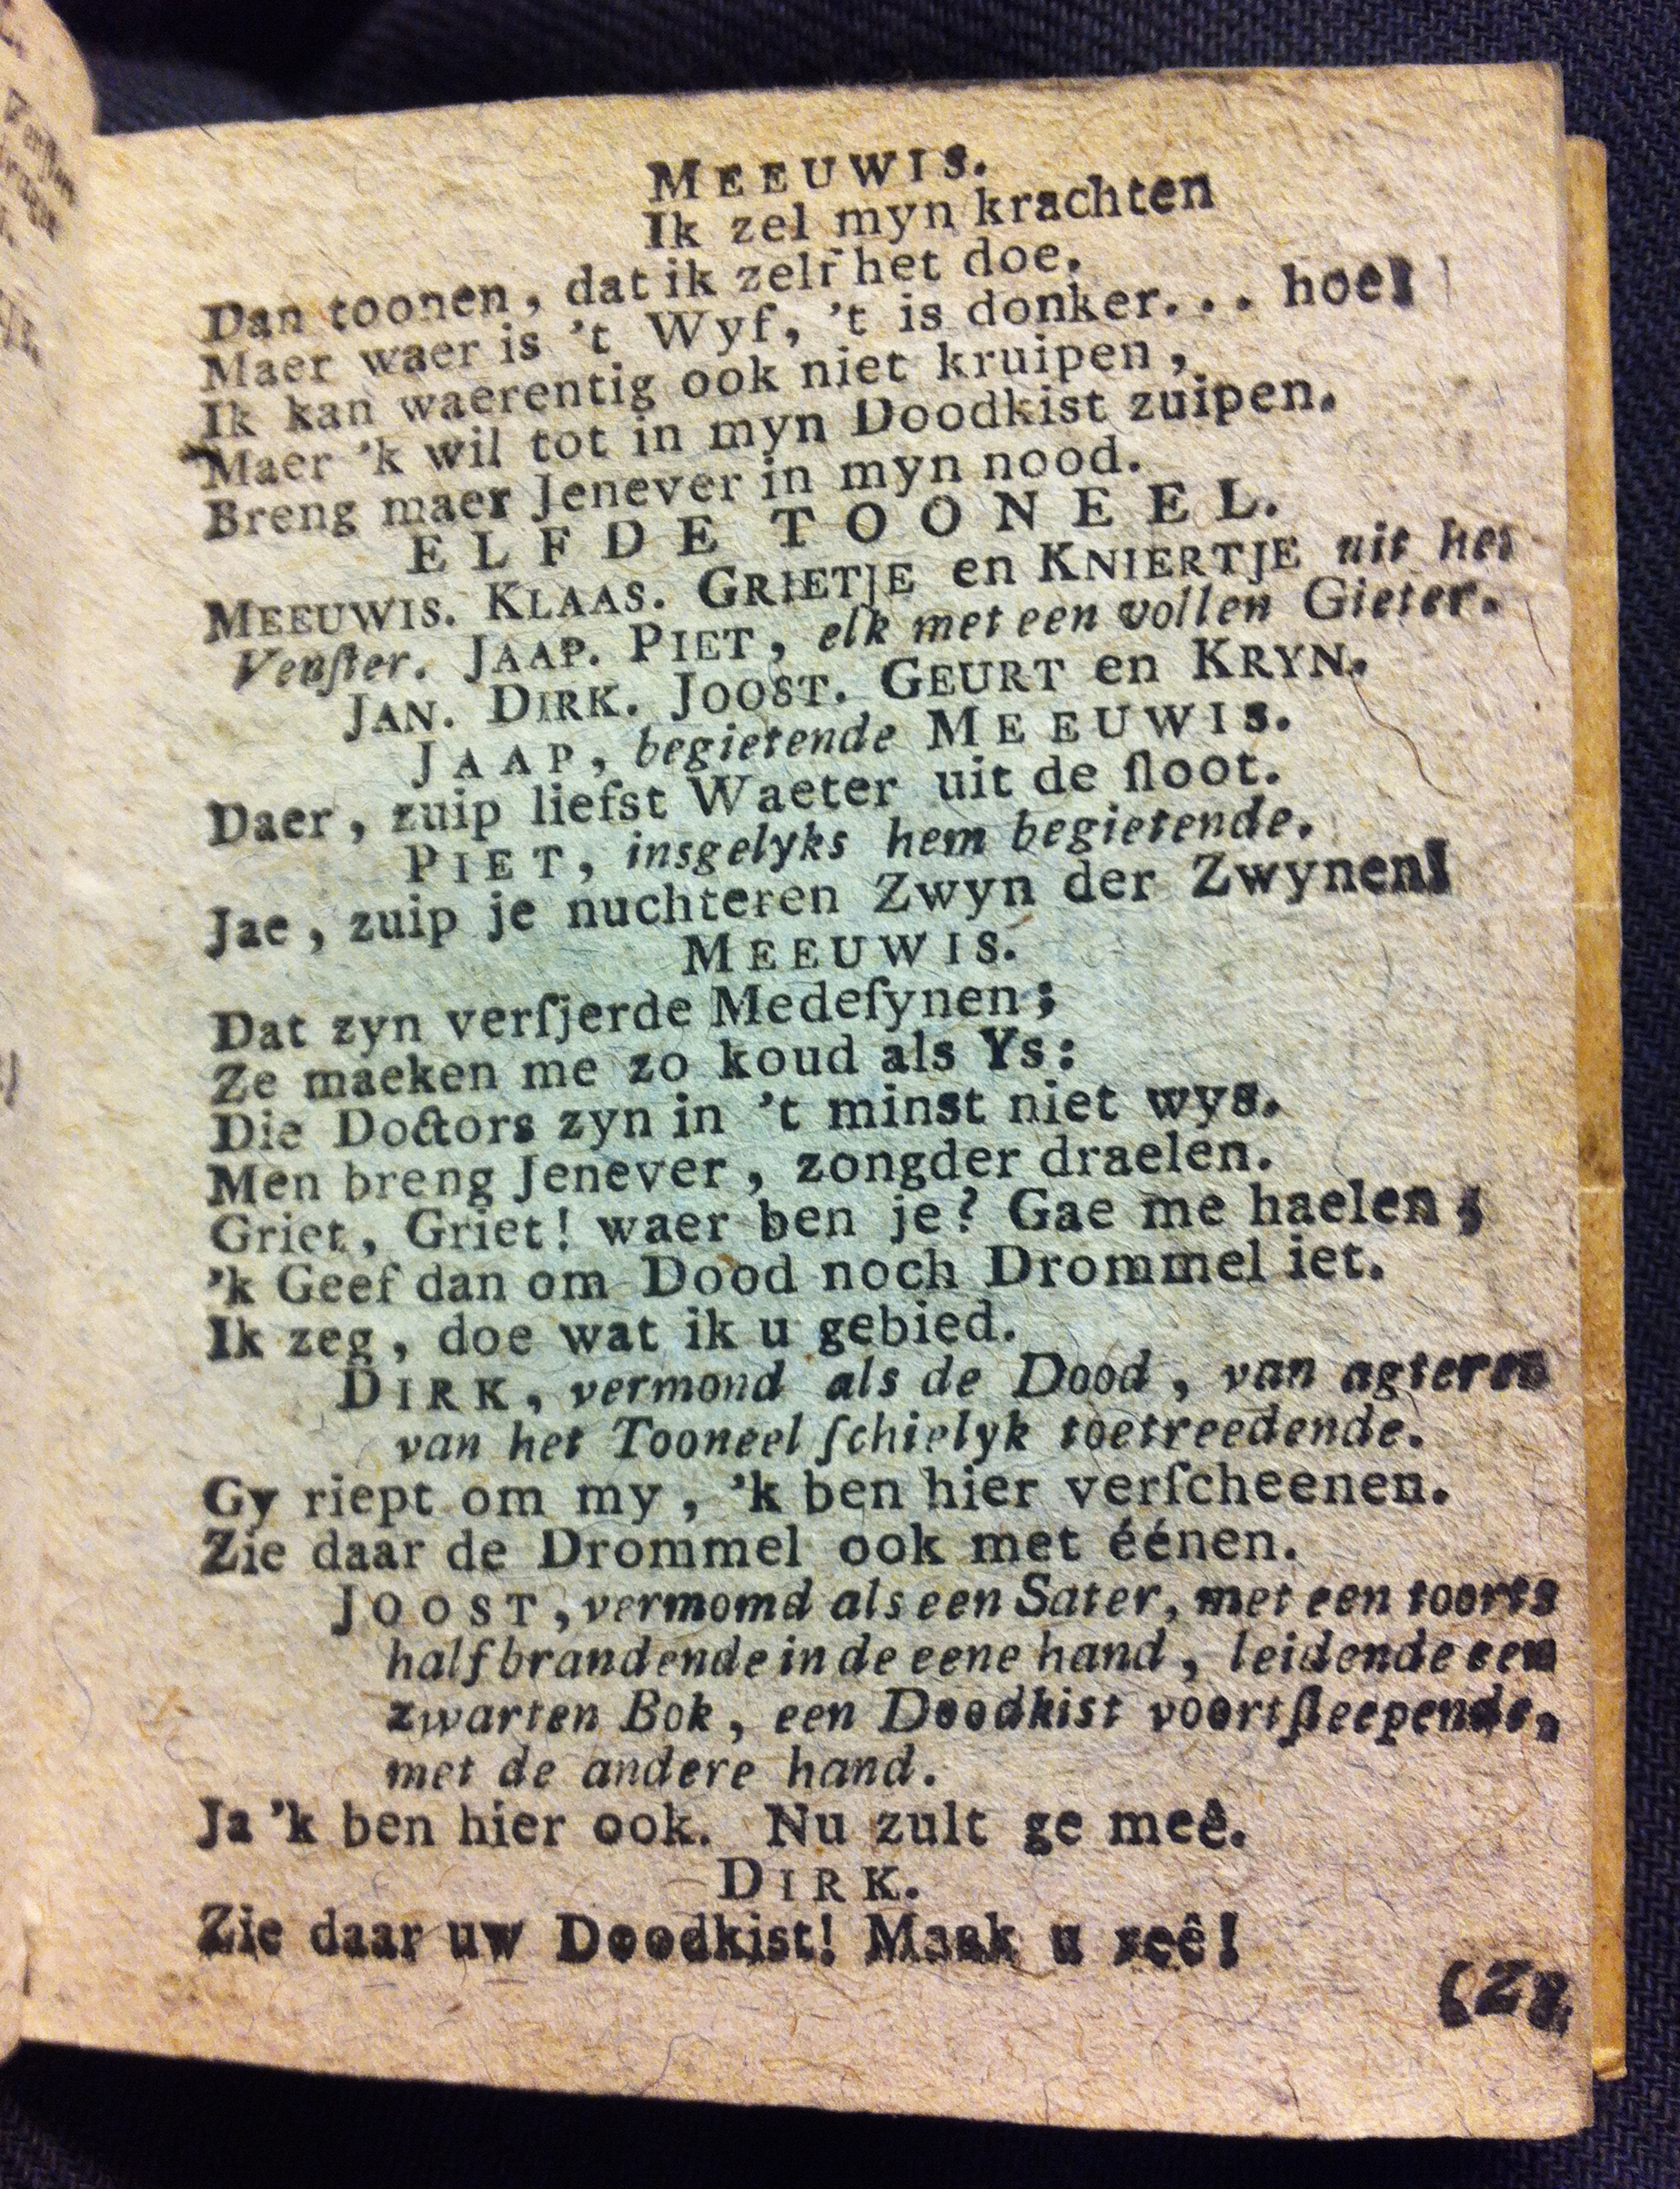 MEEUWIS.
Ik zel myn krachten
Dan toonen, dat ik zelf het doe.
Maer waer is 't Wyf, 't is donker... hoe!
Ik kan waerentig ook niet kruipen,
Maer 'k wil tot in myn Doodkist zuipen.
Breng maer Jenever in myn nood.
ELFDE TOONEEL.
MEEUWIS. KLAAS. GRIETJE en KNIERTJE uit het
Venſter. JAAP. PIET, elk met een vollen Gieter.
JAN. DIRK. JOOST. GEURT en KRYN.
JAAP, begietende MEEUWIS.
Daer, zuip liefst Waeter uit de ſloot.
PIET, insgelyks hem begietende.
Jae, zuip je nuchteren Zwyn der Zwynen!
MEEUWIS.
Dat zyn verſjerde Medeſynen;
Ze maeken me zo koud als Ys:
Die Doctors zyn in 't minst niet wys.
Men breng Jenever, zongder draelen.
Griet, Griet! waer ben je? Gae me haelen;
'k Geef dan om Dood noch Drommel iet.
Ik zeg, doe wat ik u gebied.
DIRK, vermond als de Dood, van agteren
van het Tooneel ſchielyk toetreedende.
Gy riept om my, 'k ben hier verſcheenen.
Zie daar de Drommel ook met éénen.
JOOST, vermomd als een Sater, met een toorts
half brandende in de eene hand, leidende een
zwarten Bok, een Doodkist voortſleepende,
met de andere hand.
Ja 'k ben hier ook. Nu zult ge meê.
DIRK.
Zie daar uw Doodkist! Maak u reê!